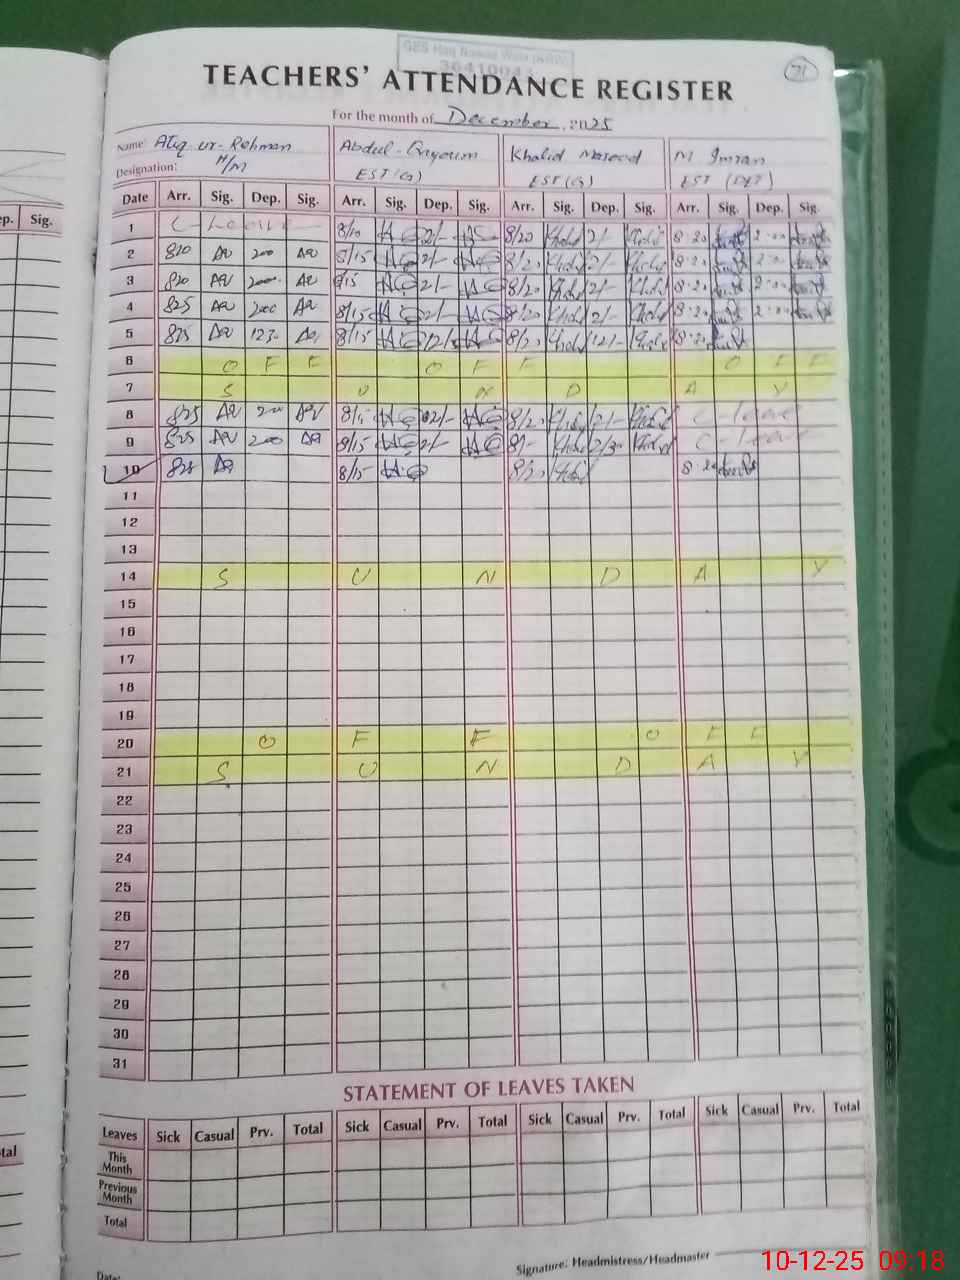 GES Haq Nawaz Wala
36410041
TEACHERS' ATTENDANCE REGISTER
71
For the month of December, 2025
Name: Atiq-ur-Rehman Abdul-Qayoum Khalid Masood M Imran
Designation: H/M EST(G) EST(G) EST (DM)
ep. Sig. Date Arr. Sig. Dep. Sig. Arr. Sig. Dep. Sig. Arr. Sig. Dep. Sig. Arr. Sig. Dep. Sig.
1 C-Leave 8/10 2/- 8/20 Khalid 2/- Khalid 8:20 2:00
2 820 200 8/15 2/- 8/20 Khalid 2/- Khalid 8:20 2:00
3 820 200 8/15 2/- 8/20 Khalid 2/- Khalid 8:20 2:00
4 825 200 8/15 2/- 8/20 Khalid 2/- Khalid 8:20 2:00
5 825 8/15 8/20 Khalid 12/- Khalid 8:20
6 O F F O F F O F F
7 S U N D A Y
8 825 200 8/15 2/- 8/20 Khalid 2/- Khalid C-leave
9 825 200 8/15 2/- 8/- Khalid 2/30 Khalid C-leave
10 825 8/15 8/20 Khalid 8:20
11
12
13
14 S U N D A Y
15
16
17
18
19
20 O F F O F F
21 S U N D A Y
22
23
24
25
26
27
28
29
30
31
STATEMENT OF LEAVES TAKEN
Leaves Sick Casual Prv. Total Sick Casual Prv. Total Sick Casual Prv. Total Sick Casual Prv. Total
This Month
Previous Month
tal Total
Date:
Signature: Headmistress/Headmaster
10-12-25 09:18